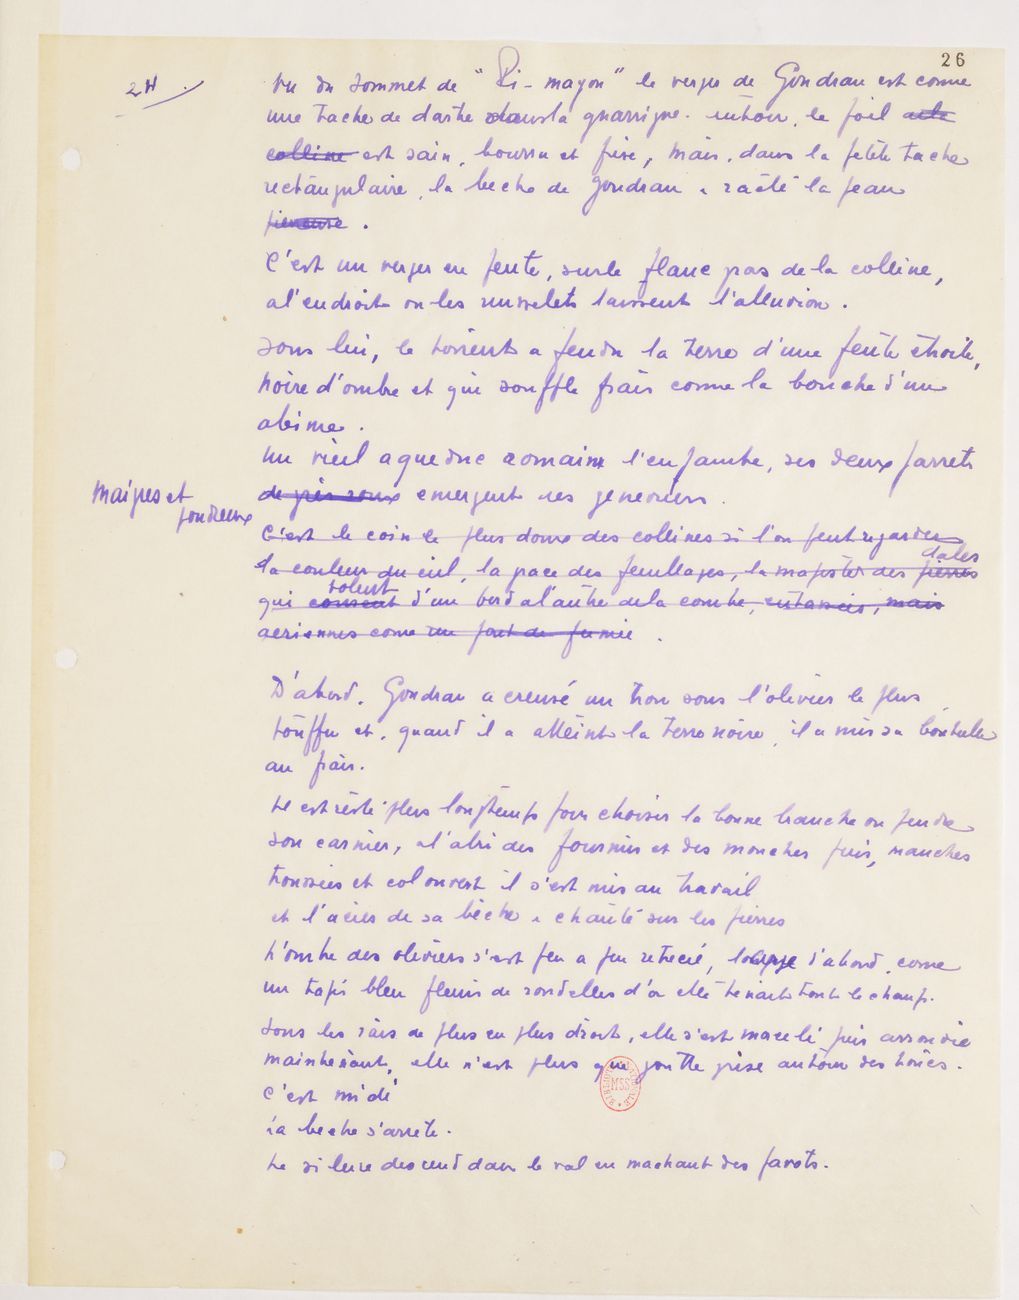 26
2H
Vu du sommet de "Pi-mayon" le verger de Gondran est comme
une tache de dartre dans la guarrigue. autour, le poil de la
colline est sain, bourru et frisé, mais, dans la petite tache
rectangulaire, la beche de gondran a raclé la peau
.
C'est un verger en pente, sur le flanc pas de la colline,
a l'endroit ou les ruisselets laissent l'alluvion.
Sous lui, le torrent a fendu la terre d'une fente étroite,
noire d'ombre et qui souffle frais comme la bouche d'un
abime.
un vieil aqueduc romain l'enjambe, ses deux jarrets
maigres et
poudreux
de grès roux emergent des geneuriers.
C'est le coin le plus doux des collines si l'on peut regarder
la couleur du ciel, la paix des feuillages, la majesté des pierres
dalles
volent
qui d'un bord a l'autre de la combe, entassés, mais
aeriennes comme un pont de fumée.
D'abord, Gondran a creusé un trou sous l'olivier le plus
touffu et, quand il a atteint la terre noire, il a mis sa bouteille
au frais.
Il est resté plus longtemps pour choisir la bonne branche ou pendre
son carnier, a l'abri des fourmis et des mouches puis, manches
troussées et col ouvert il s'est mis au travail
et l'acier de sa bêche a chanté sur les pierres
L'ombre des oliviers s'est peu a peu retrecié, large d'abord, comme
un tapis bleu fleuri de rondelles d'or elle tenait tout le champ.
Sous les rais de plus en plus droits, elle s'est morcelé puis arrondie
maintenant, elle n'est plus que goutte grise autour des troncs.
C'est midi
la beche s'arrete.
Le silence descend dans le val en machant des pavots.
BIBLIOTHEQUE NATIONALE MSS